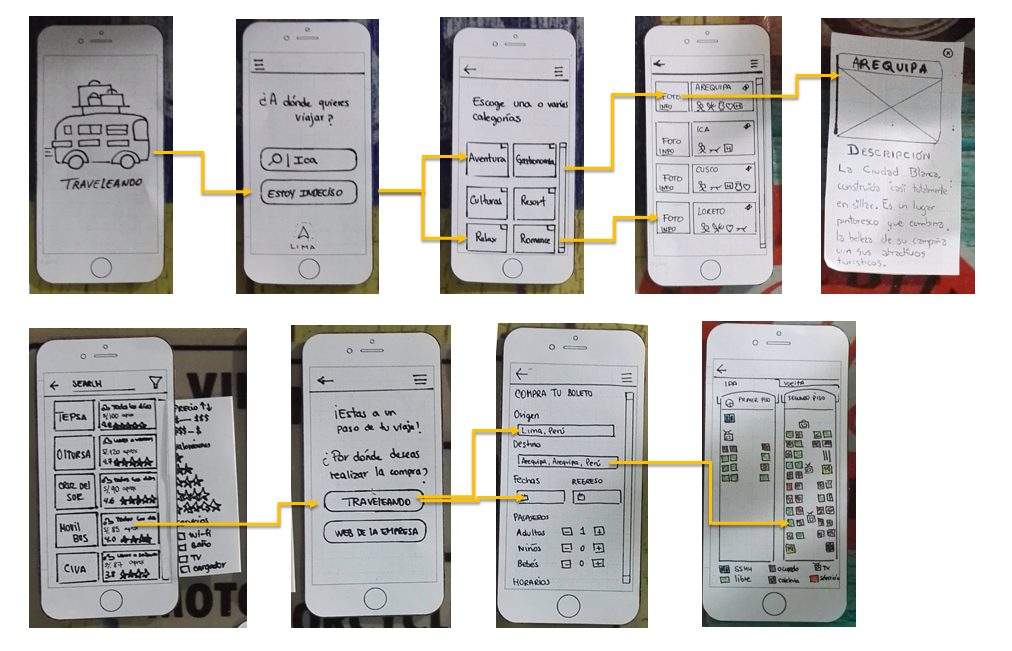 TRAVELEANDO
¿A dónde quieres
viajar?
Ica
ESTOY INDECISO
LIMA
Escoge una o varias
categorías
Aventura
Gastronomía
Culturas
Resort
Relax
Romance
FOTO
INFO
AREQUIPA
FOTO
INFO
ICA
FOTO
INFO
CUSCO
FOTO
INFO
LORETO
AREQUIPA
DESCRIPCIÓN
La Ciudad Blanca,
construida casi totalmente
en sillar. Es un lugar
pintoresco que combina
la belleza de su campiña
con sus atractivos
turísticos.
SEARCH
TEPSA
Todos los días
S/.100 aprox
4.8
OLTURSA
S/.120 aprox
4.7
CRUZ DEL
SUR
Todos los días
S/.90 aprox
4.6
MOVIL
BUS
Todos los días
S/.85 aprox
4.0
CIVA
S/.87 aprox
3.8
Precio ↑↓
$ — $$$
$$$ — $
Wi-fi
Baño
TV
cargador
¡Estas a un
paso de tu viaje!
¿Por dónde deseas
realizar la compra?
TRAVELEANDO
WEB DE LA EMPRESA
COMPRA TU BOLETO
Origen
Lima, Perú
Destino
Arequipa, Arequipa, Perú
Fechas
REGRESO
PASAJEROS
Adultos - 1 +
Niños - 0 +
Bebés - 0 +
HORARIOS
IDA
VUELTA
PRIMER PISO
SEGUNDO PISO
SSHH
ocupado
TV
libre
cafetería